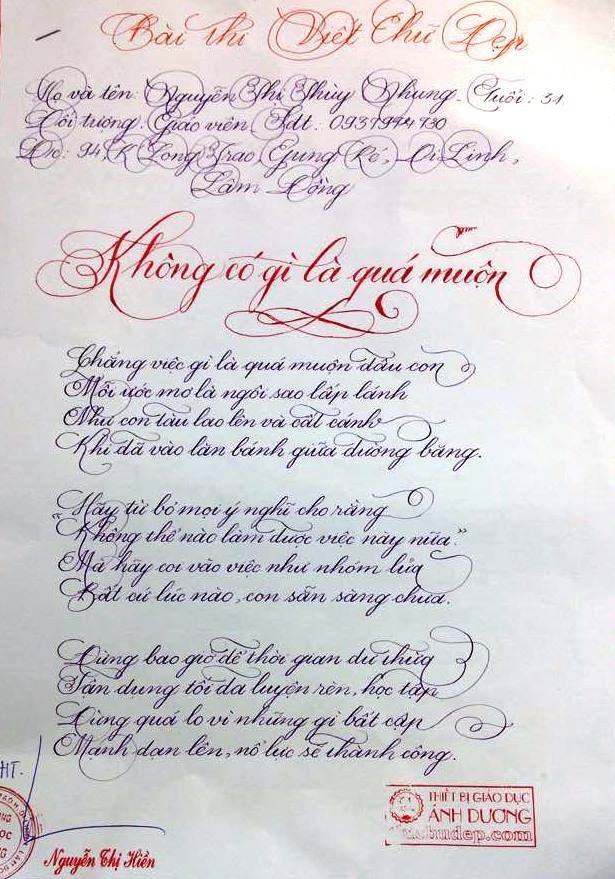 Bài thi Viết Chữ Đẹp
Họ và tên: Nguyễn Thị Thùy Nhung. Tuổi: 31
Đối tượng: Giáo viên Sđt: 0937974730
Đ/c: 94, K'Long Trao, Gung Ré, Di Linh,
Lâm Đồng
Không có gì là quá muộn
Chẳng việc gì là quá muộn đâu con
Mỗi ước mơ là ngôi sao lấp lánh
Như con tàu lao lên và cất cánh
Khi đã vào lăn bánh giữa đường băng.
Hãy từ bỏ mọi ý nghĩ cho rằng
"Không thể nào làm được việc này nữa."
Mà hãy coi vào việc như nhóm lửa
Bất cứ lúc nào, con sẵn sàng chưa.
Đừng bao giờ để thời gian dư thừa
Tận dụng tối đa luyện rèn, học tập
Đừng quá lo vì những gì bất cập
Mạnh dạn lên, nỗ lực sẽ thành công.
HT.
Nguyễn Thị Hiền
THIẾT BỊ GIÁO DỤC
ÁNH DƯƠNG